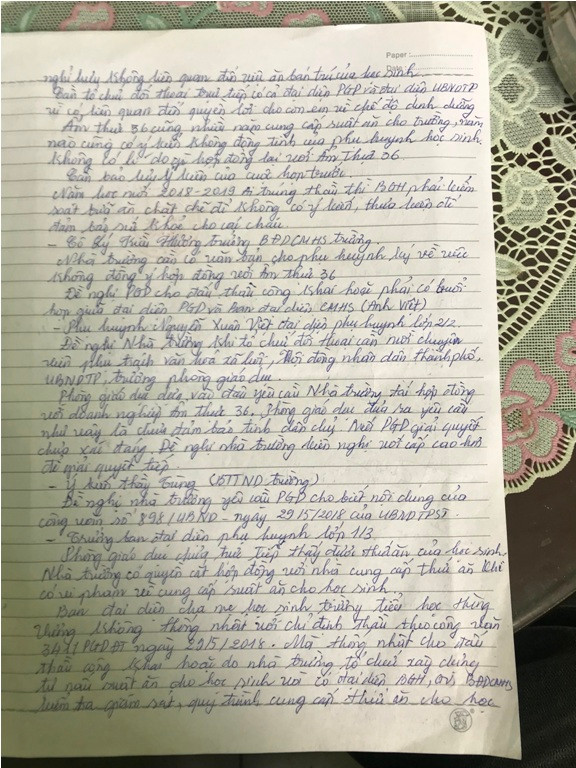 Paper :
Date :
nghỉ hưu, không liên quan đến việc ăn bán trú của học sinh.
Cần tổ chức đối thoại trực tiếp có cả đại diện PGD và đại diện UBNDTP
vì có liên quan đến quyền lợi cho con em về chế độ dinh dưỡng
Ẩm thực 36 cùng nhiều năm cung cấp suất ăn cho trường, năm
nào cũng có ý kiến không đồng tình của phụ huynh học sinh.
Không có lí do gì hợp đồng lại với Ẩm Thực 36.
Cần bảo lưu ý kiến của cuộc họp trước.
Năm học mới 2018-2019 Ai trúng thầu thì BGH phải kiểm
soát bữa ăn chặt chẽ để không có ý kiến, để
đảm bảo sức khỏe cho các cháu.
trưởng BĐDCMHS trường
Nhà trường cần có văn bản cho phụ huynh ký về việc
không đồng ý hợp đồng với Ẩm thực 36
Đề nghị PGD cho đấu thầu công khai hoặc phải có buổi
họp giữa đại diện PGD và Ban đại diện CMHS (Anh Việt)
- Phụ huynh Nguyễn Xuân Việt đại diện phụ huynh lớp 2/2
Đề nghị Nhà trường khi tổ chức đối thoại cần mời chuyên
viên phụ trách văn hoá xã hội, Hội đồng nhân dân thành phố,
UBNDTP, trưởng phòng giáo dục.
Phòng giáo dục dựa vào đâu yêu cầu Nhà trường tái hợp đồng
với doanh nghiệp Ẩm thực 36. Phòng giáo dục đưa ra yêu cầu
như vậy là chưa đảm bảo tính dân chủ. Nếu PGD giải quyết
chưa xác đáng. Đề nghị nhà trường kiến nghị với cấp cao hơn
để giải quyết tiếp.
- Ý kiến thầy Trung (BTTND trường)
Đề nghị nhà trường yêu cầu PGD cho biết nội dung của
công văn số 898/UBND - ngày 29/5/2018 của UBNDTPST.
- Trưởng ban đại diện phụ huynh lớp 1/3.
Phòng giáo dục chưa trực tiếp thấy được thức ăn của học sinh,
Nhà trường có quyền cắt hợp đồng với nhà cung cấp thức ăn khi
có vi phạm về cung cấp suất ăn cho học sinh.
Ban đại diện cha mẹ học sinh trường tiểu học Hùng
Vương không thống nhất với chỉ định thầu theo công văn
/PGDĐT ngày 29/5/2018. Mà thống nhất cho đấu
thầu công khai hoặc do nhà trường tổ chức
tự nấu suất ăn cho học sinh với có đại diện BGH, BĐDCMHS
kiểm tra giám sát, quy trình cung cấp thức ăn cho học